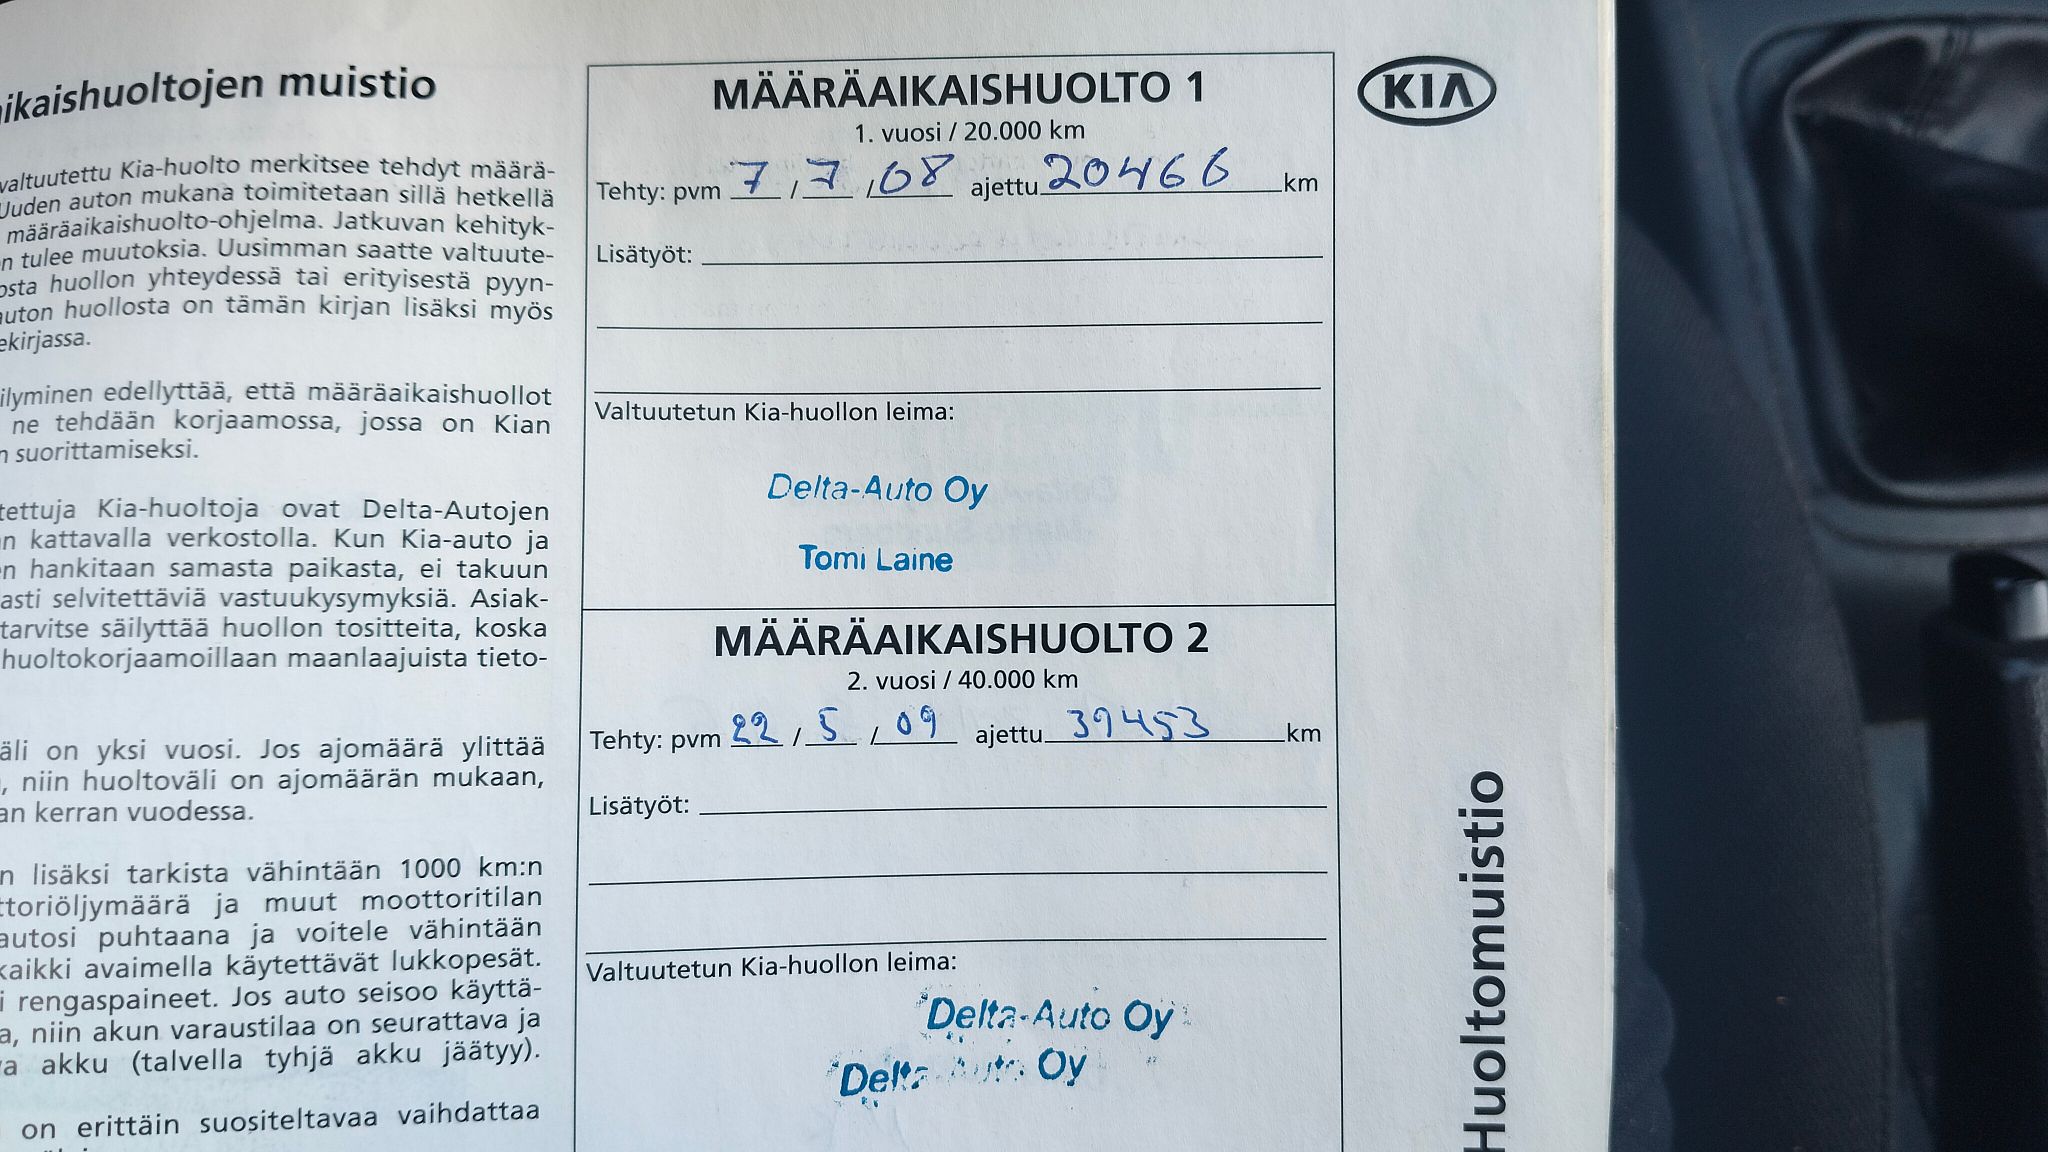 aikaishuoltojen muistio
valtuutettu Kia-huolto merkitsee tehdyt määrä-
Uuden auton mukana toimitetaan sillä hetkellä
määräaikaishuolto-ohjelma. Jatkuvan kehityk-
n tulee muutoksia. Uusimman saatte valtuute-
osta huollon yhteydessä tai erityisestä pyyn-
auton huollosta on tämän kirjan lisäksi myös
ekirjassa.
ilyminen edellyttää, että määräaikaishuollot
ne tehdään korjaamossa, jossa on Kian
n suorittamiseksi.
tettuja Kia-huoltoja ovat Delta-Autojen
n kattavalla verkostolla. Kun Kia-auto ja
en hankitaan samasta paikasta, ei takuun
asti selvitettäviä vastuukysymyksiä. Asiak-
tarvitse säilyttää huollon tositteita, koska
huoltokorjaamoillaan maanlaajuista tieto-
äli on yksi vuosi. Jos ajomäärä ylittää
, niin huoltoväli on ajomäärän mukaan,
an kerran vuodessa.
n lisäksi tarkista vähintään 1000 km:n
ttoriöljymäärä ja muut moottoritilan
autosi puhtaana ja voitele vähintään
kaikki avaimella käytettävät lukkopesät.
i rengaspaineet. Jos auto seisoo käyttä-
a, niin akun varaustilaa on seurattava ja
va akku (talvella tyhjä akku jäätyy).
on erittäin suositeltavaa vaihdattaa
MÄÄRÄAIKAISHUOLTO 1
1. vuosi / 20.000 km
Tehty: pvm 7 / 7 / 08 ajettu 20466 km
Lisätyöt:
Valtuutetun Kia-huollon leima:
Delta-Auto Oy
Tomi Laine
MÄÄRÄAIKAISHUOLTO 2
2. vuosi / 40.000 km
Tehty: pvm 22 / 5 / 09 ajettu 39453 km
Lisätyöt:
Valtuutetun Kia-huollon leima:
Delta-Auto Oy
Delta-Auto Oy
KIA
Huoltomuistio